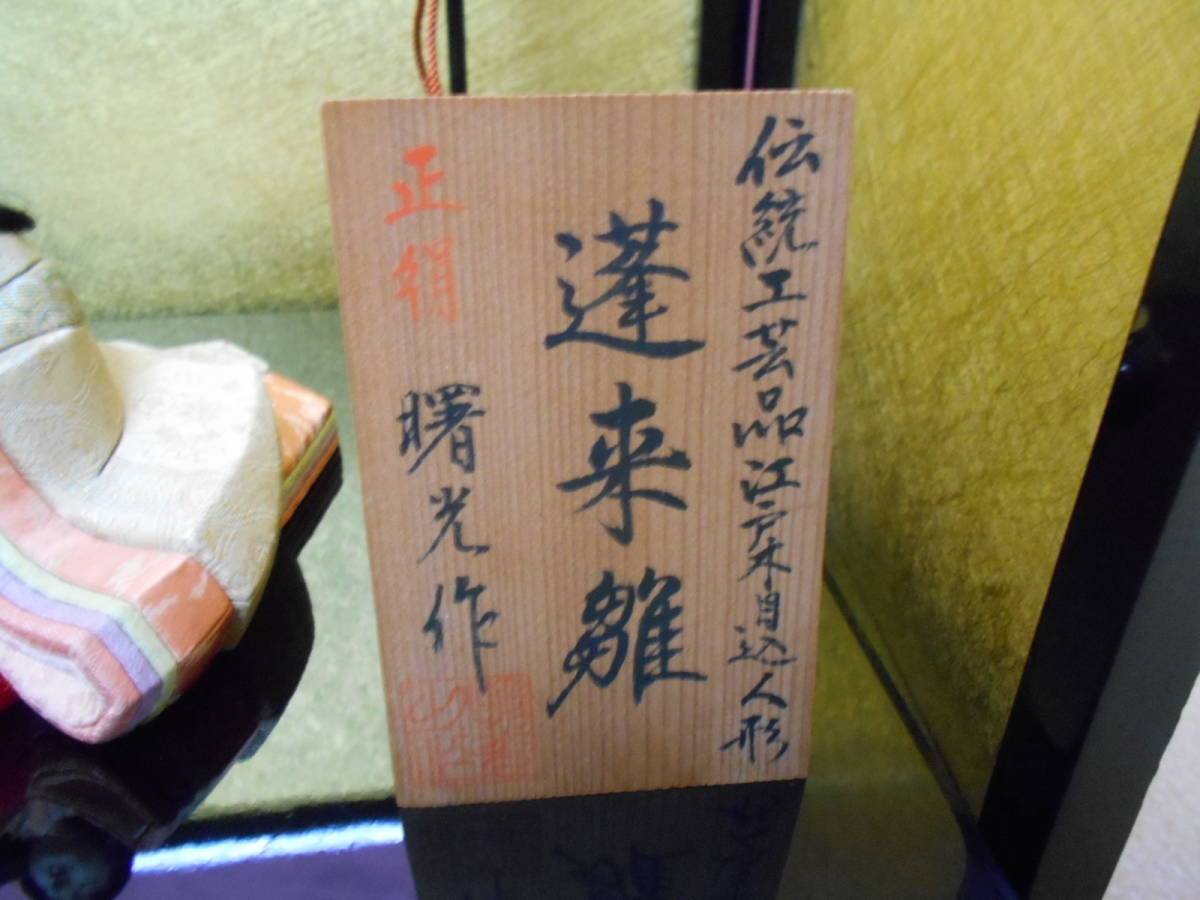 伝統工芸品江戸木目込人形
蓬来雛
正絹
曙光作